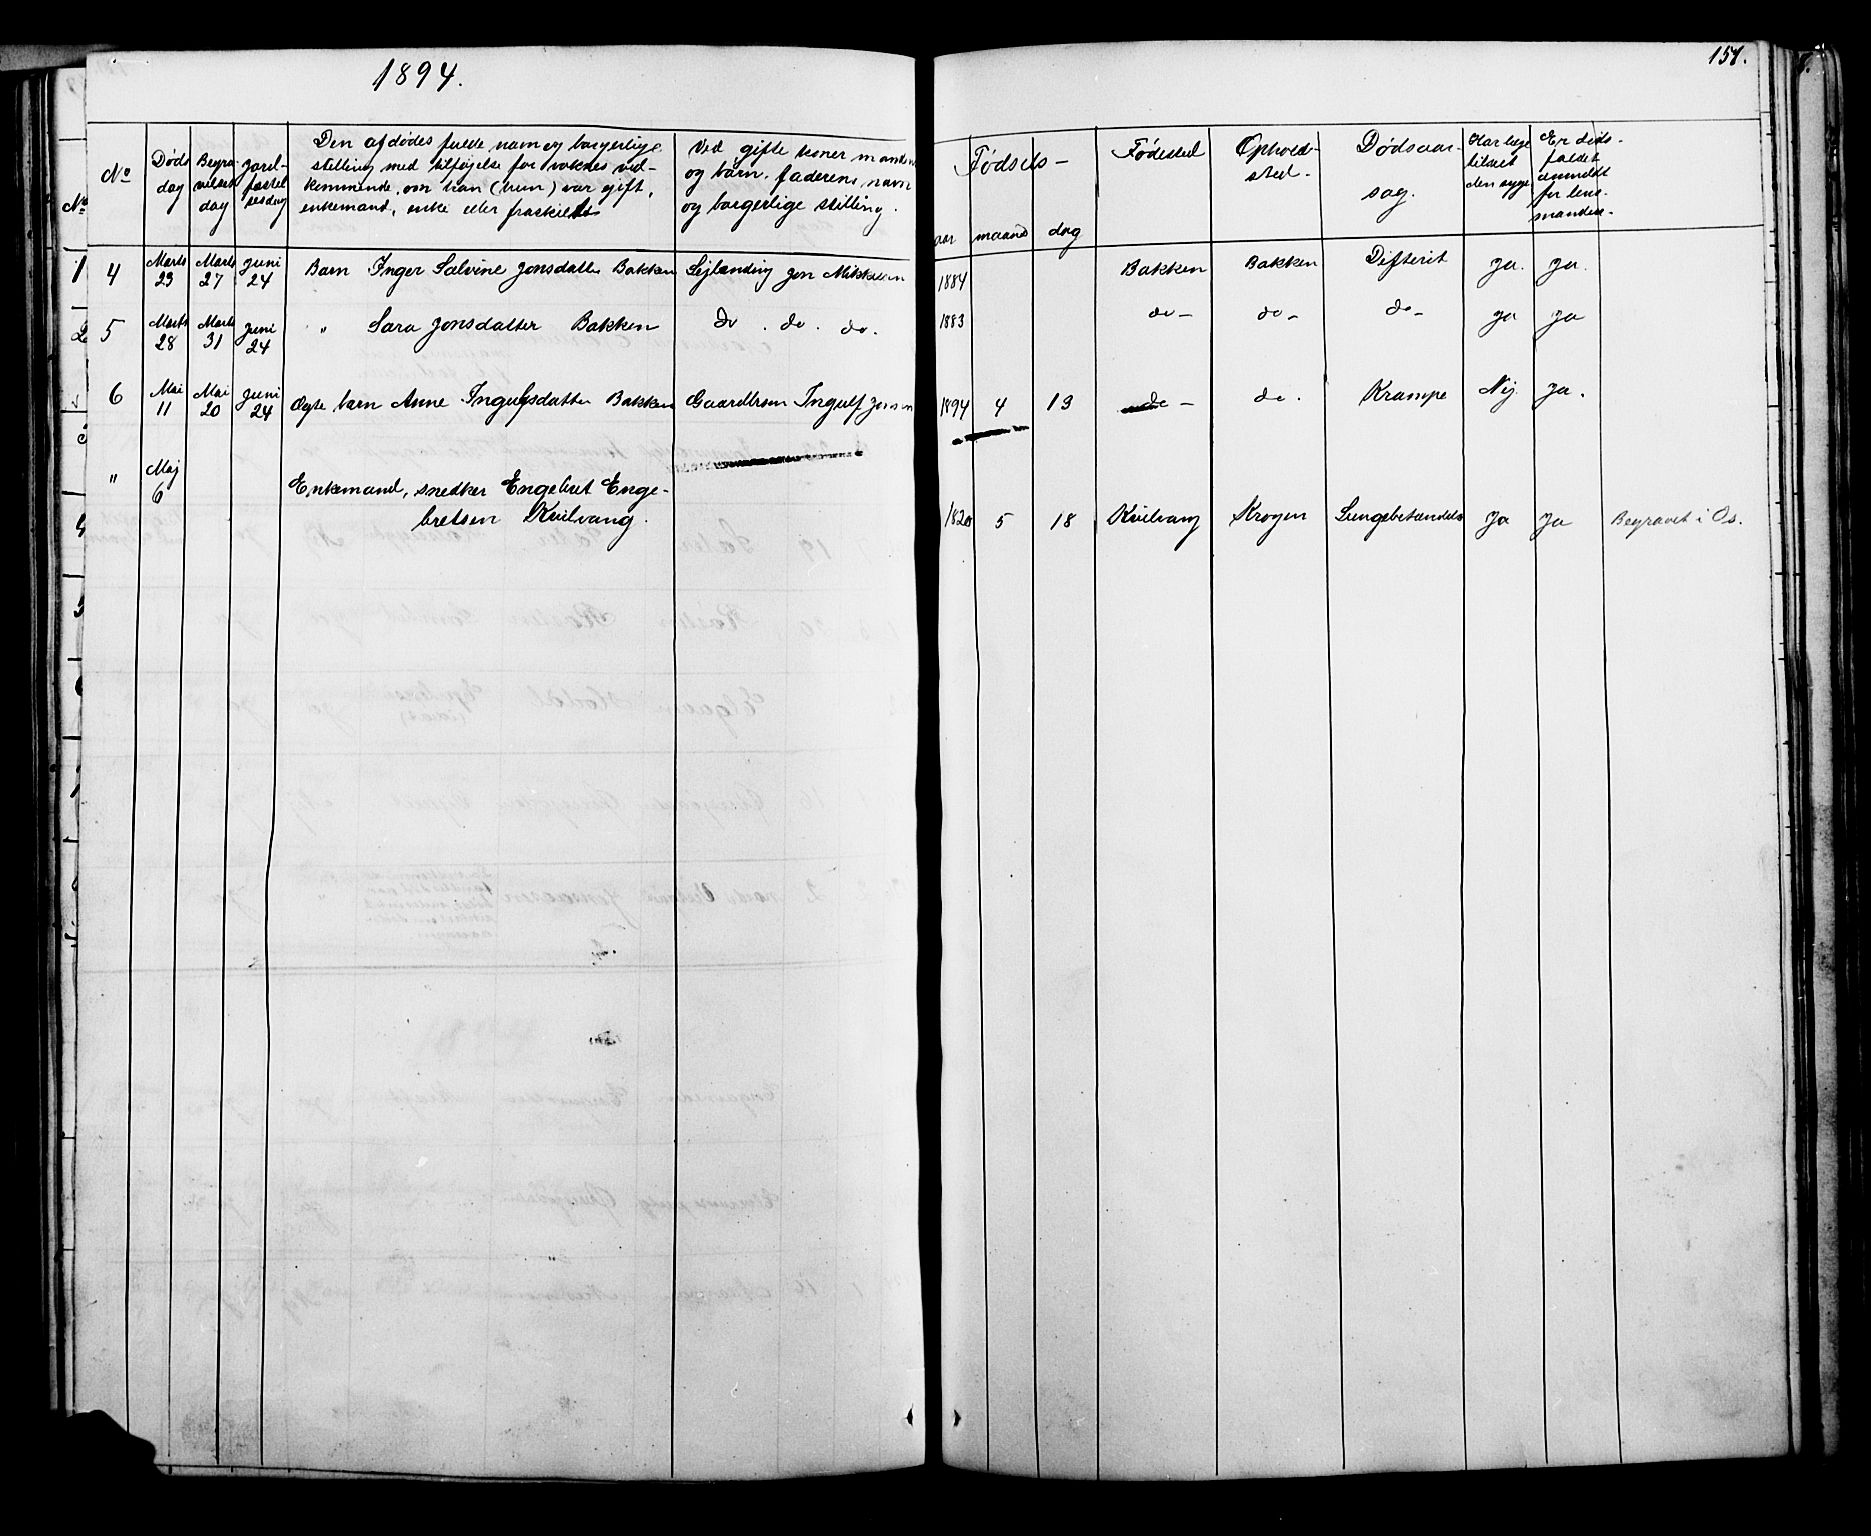 1894.
151.
No
Døds dag
Begravelses dag
Jordfæstelsesdag
Den afdødes fulde navn og borgerlige
stilling med tilføjelse for voksnes ved-
kommende, om han (hun) var gift,
enkemand, enke eller fraskilt
Ved gifte koner mandens
og børn, faderens navn
og borgerlige stilling.
Fødsels-
aar maaned dag
Fødested
Opholds-
sted.
Dødsaar-
sag.
Har læge
tilset
den syge
Er døds-
faldet
anmeldt
for lens-
manden.
4 Marts 23 Marts 27 Juni 24 Barn Inger Salvine Jonsdatter Bakken Sejlanding Jon Mikkelsen 1884 Bakken Bakken Difterit Ja. Ja.
5 Marts 28 Marts 31 Juni 24 " Sara Jonsdatter Bakken do. do. do. 1883 do- do- do- Ja Ja
6 Mai 11 Mai 20 Juni 24 Ægte barn Anne Ingulfsdatter Bakken Gaardbrom Ingulf Jonsen 1894 4 13 do- do. Krampe Nej. Ja.
" Maj 6 Enkemand, snedker Engebret Enge-
bretsen Kvilvang. 1820 5 18 Kvilvang Krogen Lungebetændelse Ja Ja Begravet i Os.